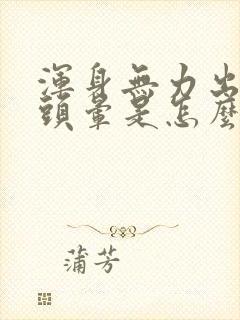 渾身無力出
頭暈是怎麼
蒲芳